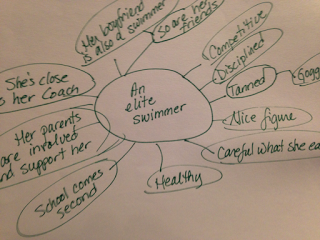 Her boyfriend
is also a swimmer
So are her
friends
Competitive
Disciplined
Tanned
Nice figure
Careful what she
Healthy
School comes
second
Her parents
are involved
support her
She's close
her Coach
An
elite
swimmer